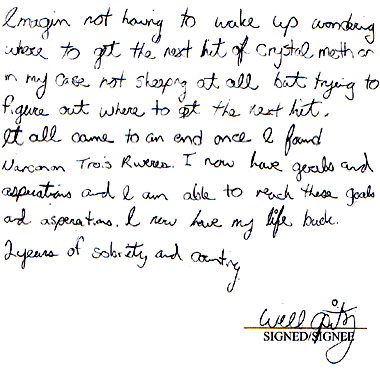 Imagin not having to wake up wondering
where to get the next hit of Crystal meth or
in my case not sleeping at all but trying to
figure out where to get the next hit.
It all came to an end once I found
Narconon Trois Rivieres. I now have goals and
asperations and I am able to reach these goals
and asperations. I now have my life back.
2 years of sobriety and counting
SIGNED/SIGNÉE